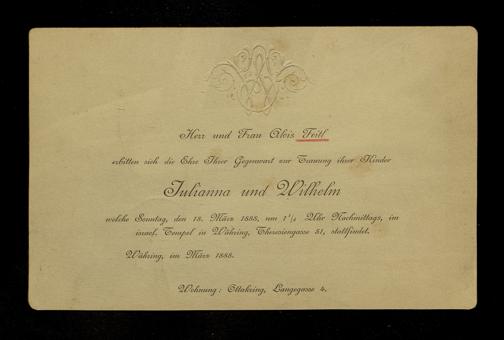 Herr und Frau Alois Feitl
erbitten sich die Ehre Ihrer Gegenwart zur Trauung ihrer Kinder
Julianna und Wilhelm
welche Sonntag, den 18. März 1888, um 1¼ Uhr Nachmittags, im
israel. Tempel in Währing, Theresiengasse 51, stattfindet.
Währing, im März 1888.
Wohnung: Ottakring, Langegasse 4.